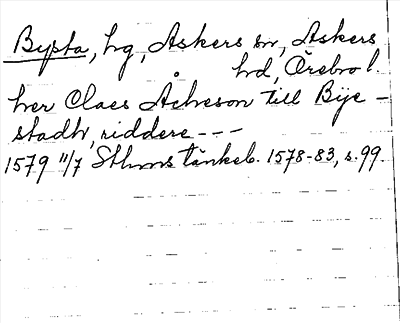 Bysta, hg, Askers sn, Askers
hd, Örebro l.
her Claes Åcheson till Bije-
stadh, riddere ---
1579 11/7 Sthms tänkeb. 1578-83, s. 99.